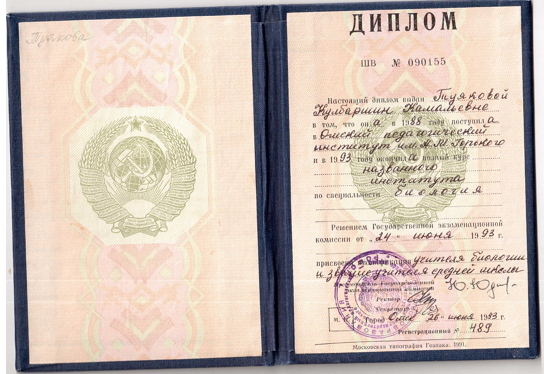 Туякова
ДИПЛОМ
ШВ № 090155
Настоящий диплом выдан Туяковой
Кулбаршин Камальевне
в том, что он а в 1988 году поступила
в Омский педагогический
институт им. А.М. Горького
и в 1993 году окончила полный курс
названного
института
по специальности биология
Решением Государственной экзаменационной
комиссии от „24“ июня 1993 г.
присвоена квалификация учителя биологии
и звание учителя средней школы
Ректор
Секретарь
Город Омск 26 июня 1993 г.
Регистрационный № 489
Московская типография Гознака. 1991.